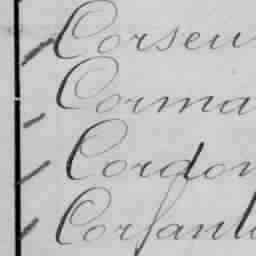 Corseu
Corma
Cordon
Corsant